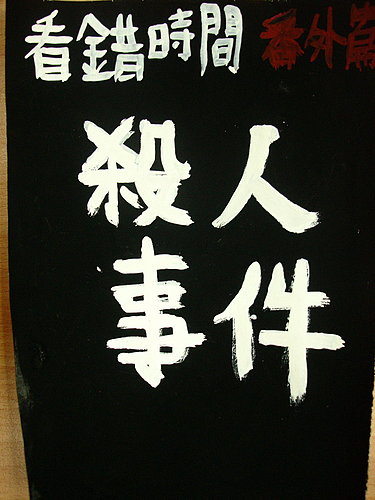 看錯時間 番外篇
殺人
事件